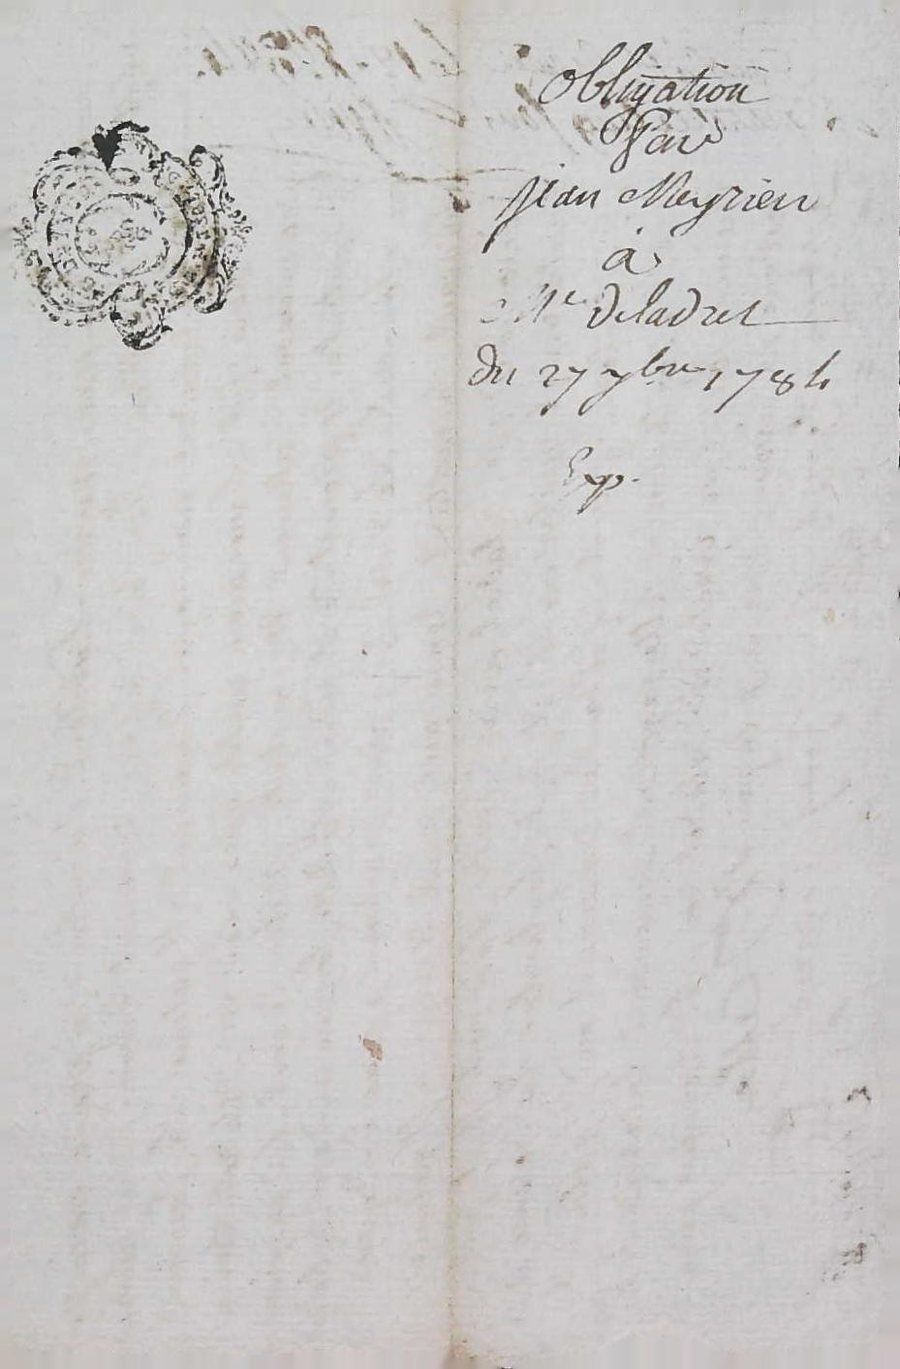 obligation
Par
jean Meyrieu
à
Me Deladret
Du 27 7bre 1784
Exp.